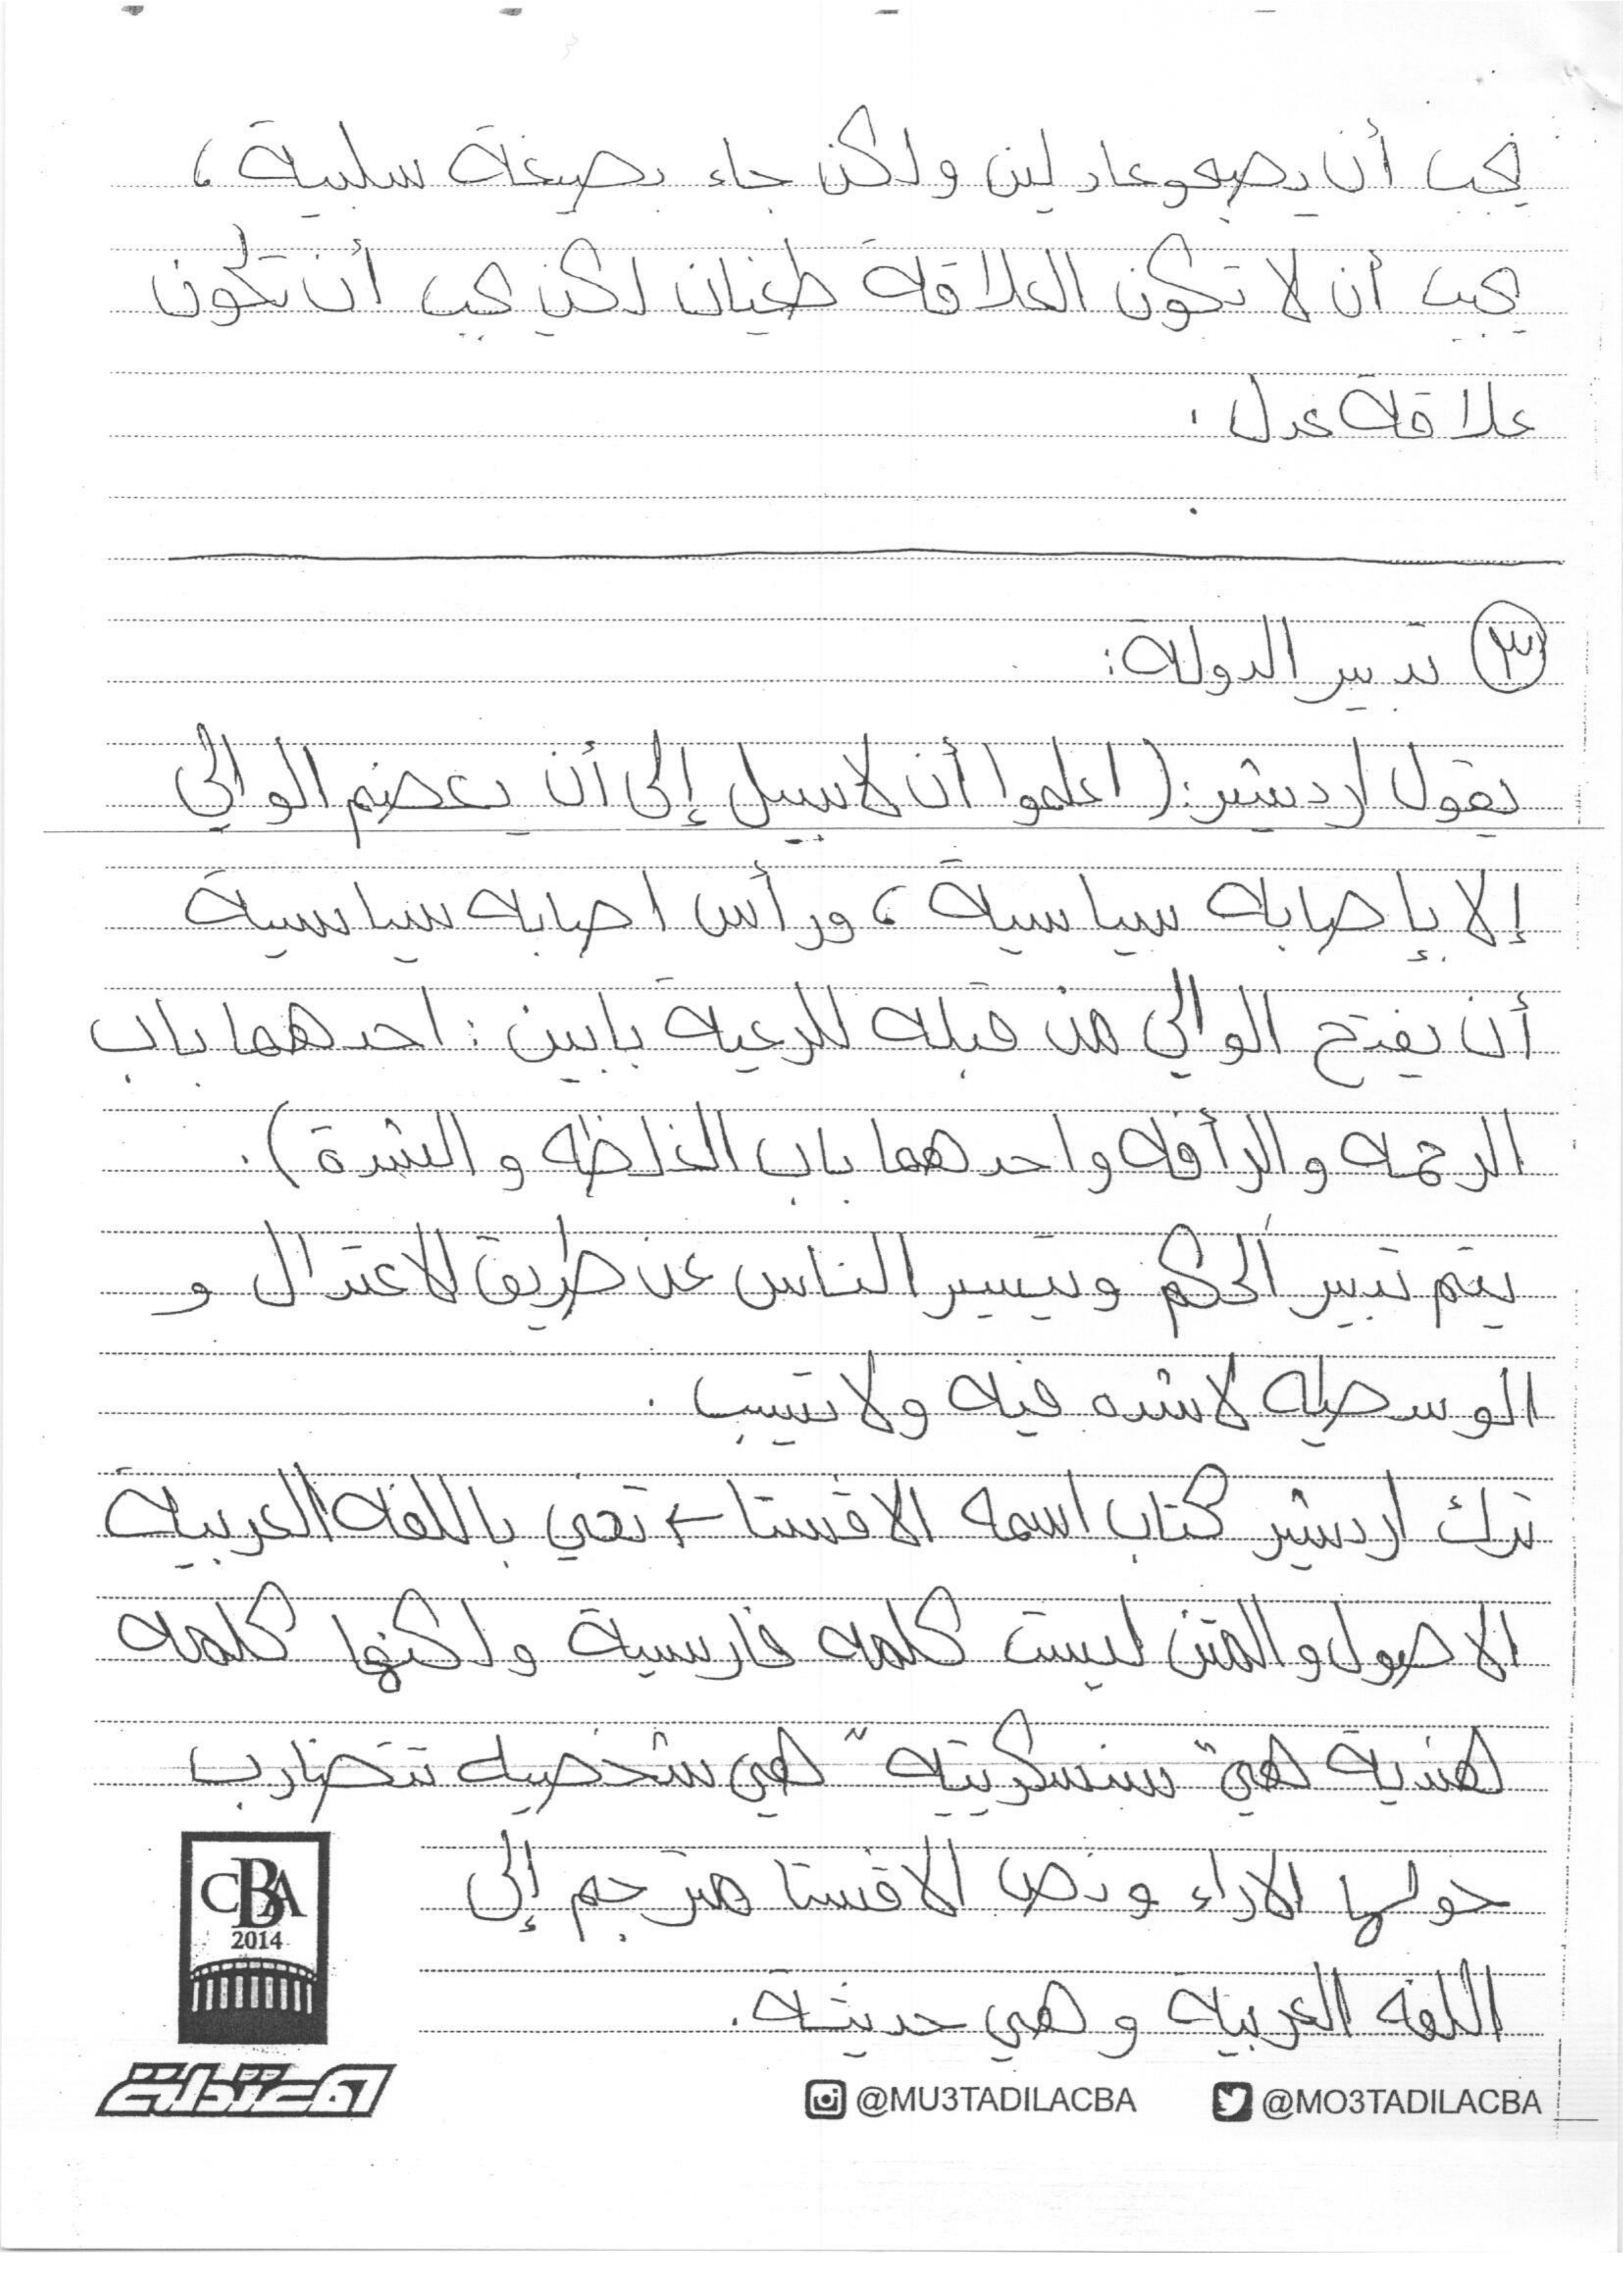 يجب أن يصبحو عادلين ولكن جاء بصيغة سلبية ،
يجب أن لا تكون العلاقة طغيان لكن يجب أن تكون
علاقة عدل .
٣ تدبير الدولة :
يقول اردشير : ( اعلموا أن لا سبيل إلى أن يعضم الوالي
إلا بإصابه سياسية ، ورأس اصابه سياسية
أن يفتح الوالي من قبله للرعية بابين : احدهما باب
الرحمه والرأفه واحدهما باب الغلظه والشدة ) .
يتم تدبير الحكم وتيسير الناس عن طريق الاعتدال و
الوسطيه لا شده فيه ولا تسيب .
ترك اردشير كتاب اسمه الافستا ← تعني باللغه العربية
الاصول والمتن ليست كلمه فارسية ولكنها كلمه
هندية هي " سنسكريتيه " هي شخصيه تتضارب
حولها الاراء ونص الافستا مترجم إلى
اللغه العربيه وهي حديثه .
CBA
2014
معتدلة
@MU3TADILACBA @MO3TADILACBA